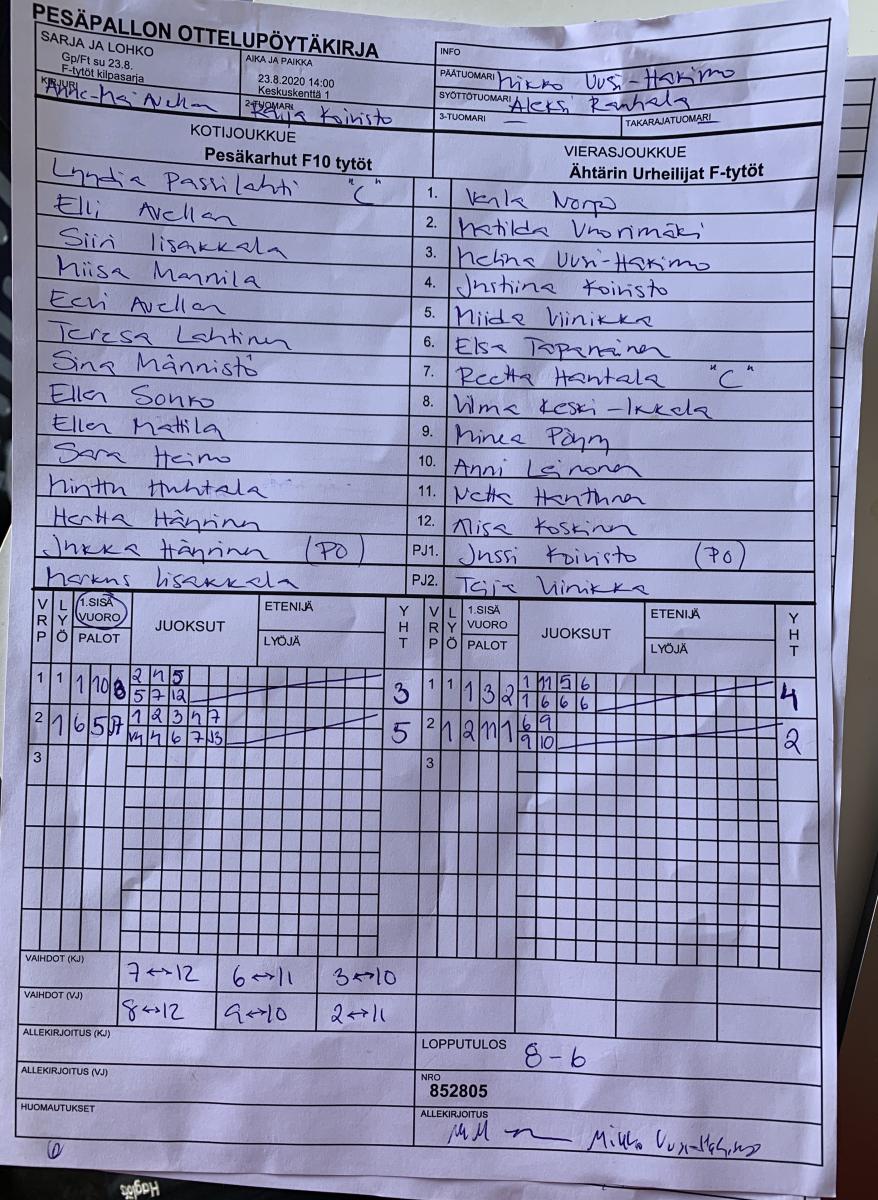 PESÄPALLON OTTELUPÖYTÄKIRJA
SARJA JA LOHKO
Gp/Ft su 23.8.
F-tytöt kilpasarja
AIKA JA PAIKKA
23.8.2020 14:00
Keskuskenttä 1
INFO
PÄÄTUOMARI Mikko Uusi-Hakimo
SYÖTTÖTUOMARI Aleksi Rauhala
3-TUOMARI —
TAKARAJATUOMARI —
KIRJURI Anne-Maj Avellan
2-TUOMARI Koivisto
KOTIJOUKKUE
Pesäkarhut F10 tytöt
VIERASJOUKKUE
Ähtärin Urheilijat F-tytöt
Lyydia Passilahti "C" 1. Venla Norpo
Elli Avellan 2. Matilda Vuorimäki
Siiri Iisakkala 3. Melina Uusi-Hakimo
Miisa Mannila 4. Justiina Koivisto
Eevi Avellan 5. Miida Viinikka
Teresa Lahtinen 6. Elsa Tapanainen
Sina Männistö 7. Reetta Hantala "C"
Ellen Sonko 8. Vilma Keski-Ikkala
Ellen Mattila 9. Minea Pöhm
Sara Heimo 10. Anni Leinonen
Minttu Huhtala 11. Netta Hanthner
Hertta Häyrinen 12. Alisa Koskinen
Jukka Häyrinen (PO) PJ1. Jussi Koivisto (PO)
Markus Iisakkala PJ2. Teija Viinikka
VRP LYÖ 1.SISÄ VUORO PALOT JUOKSUT ETENIJÄ LYÖJÄ YHT VRP LYÖ 1.SISÄ VUORO PALOT JUOKSUT ETENIJÄ LYÖJÄ YHT
1 1 1 10 8 2 4 5 3 1 1 1 3 2 1 11 5 6 4
5 7 12 1 6 6 6
2 1 6 5 1 2 3 4 7 5 2 1 2 11 1 6 9 2
4 6 7 J3 9 10
3 3
VAIHDOT (KJ) 7↔12 6↔11 3↔10
VAIHDOT (VJ) 8↔12 9↔10 2↔11
ALLEKIRJOITUS (KJ)
LOPPUTULOS 8-6
ALLEKIRJOITUS (VJ)
NRO
852805
HUOMAUTUKSET
ALLEKIRJOITUS
Mikko Uusi-Hakimo
Haglöfs